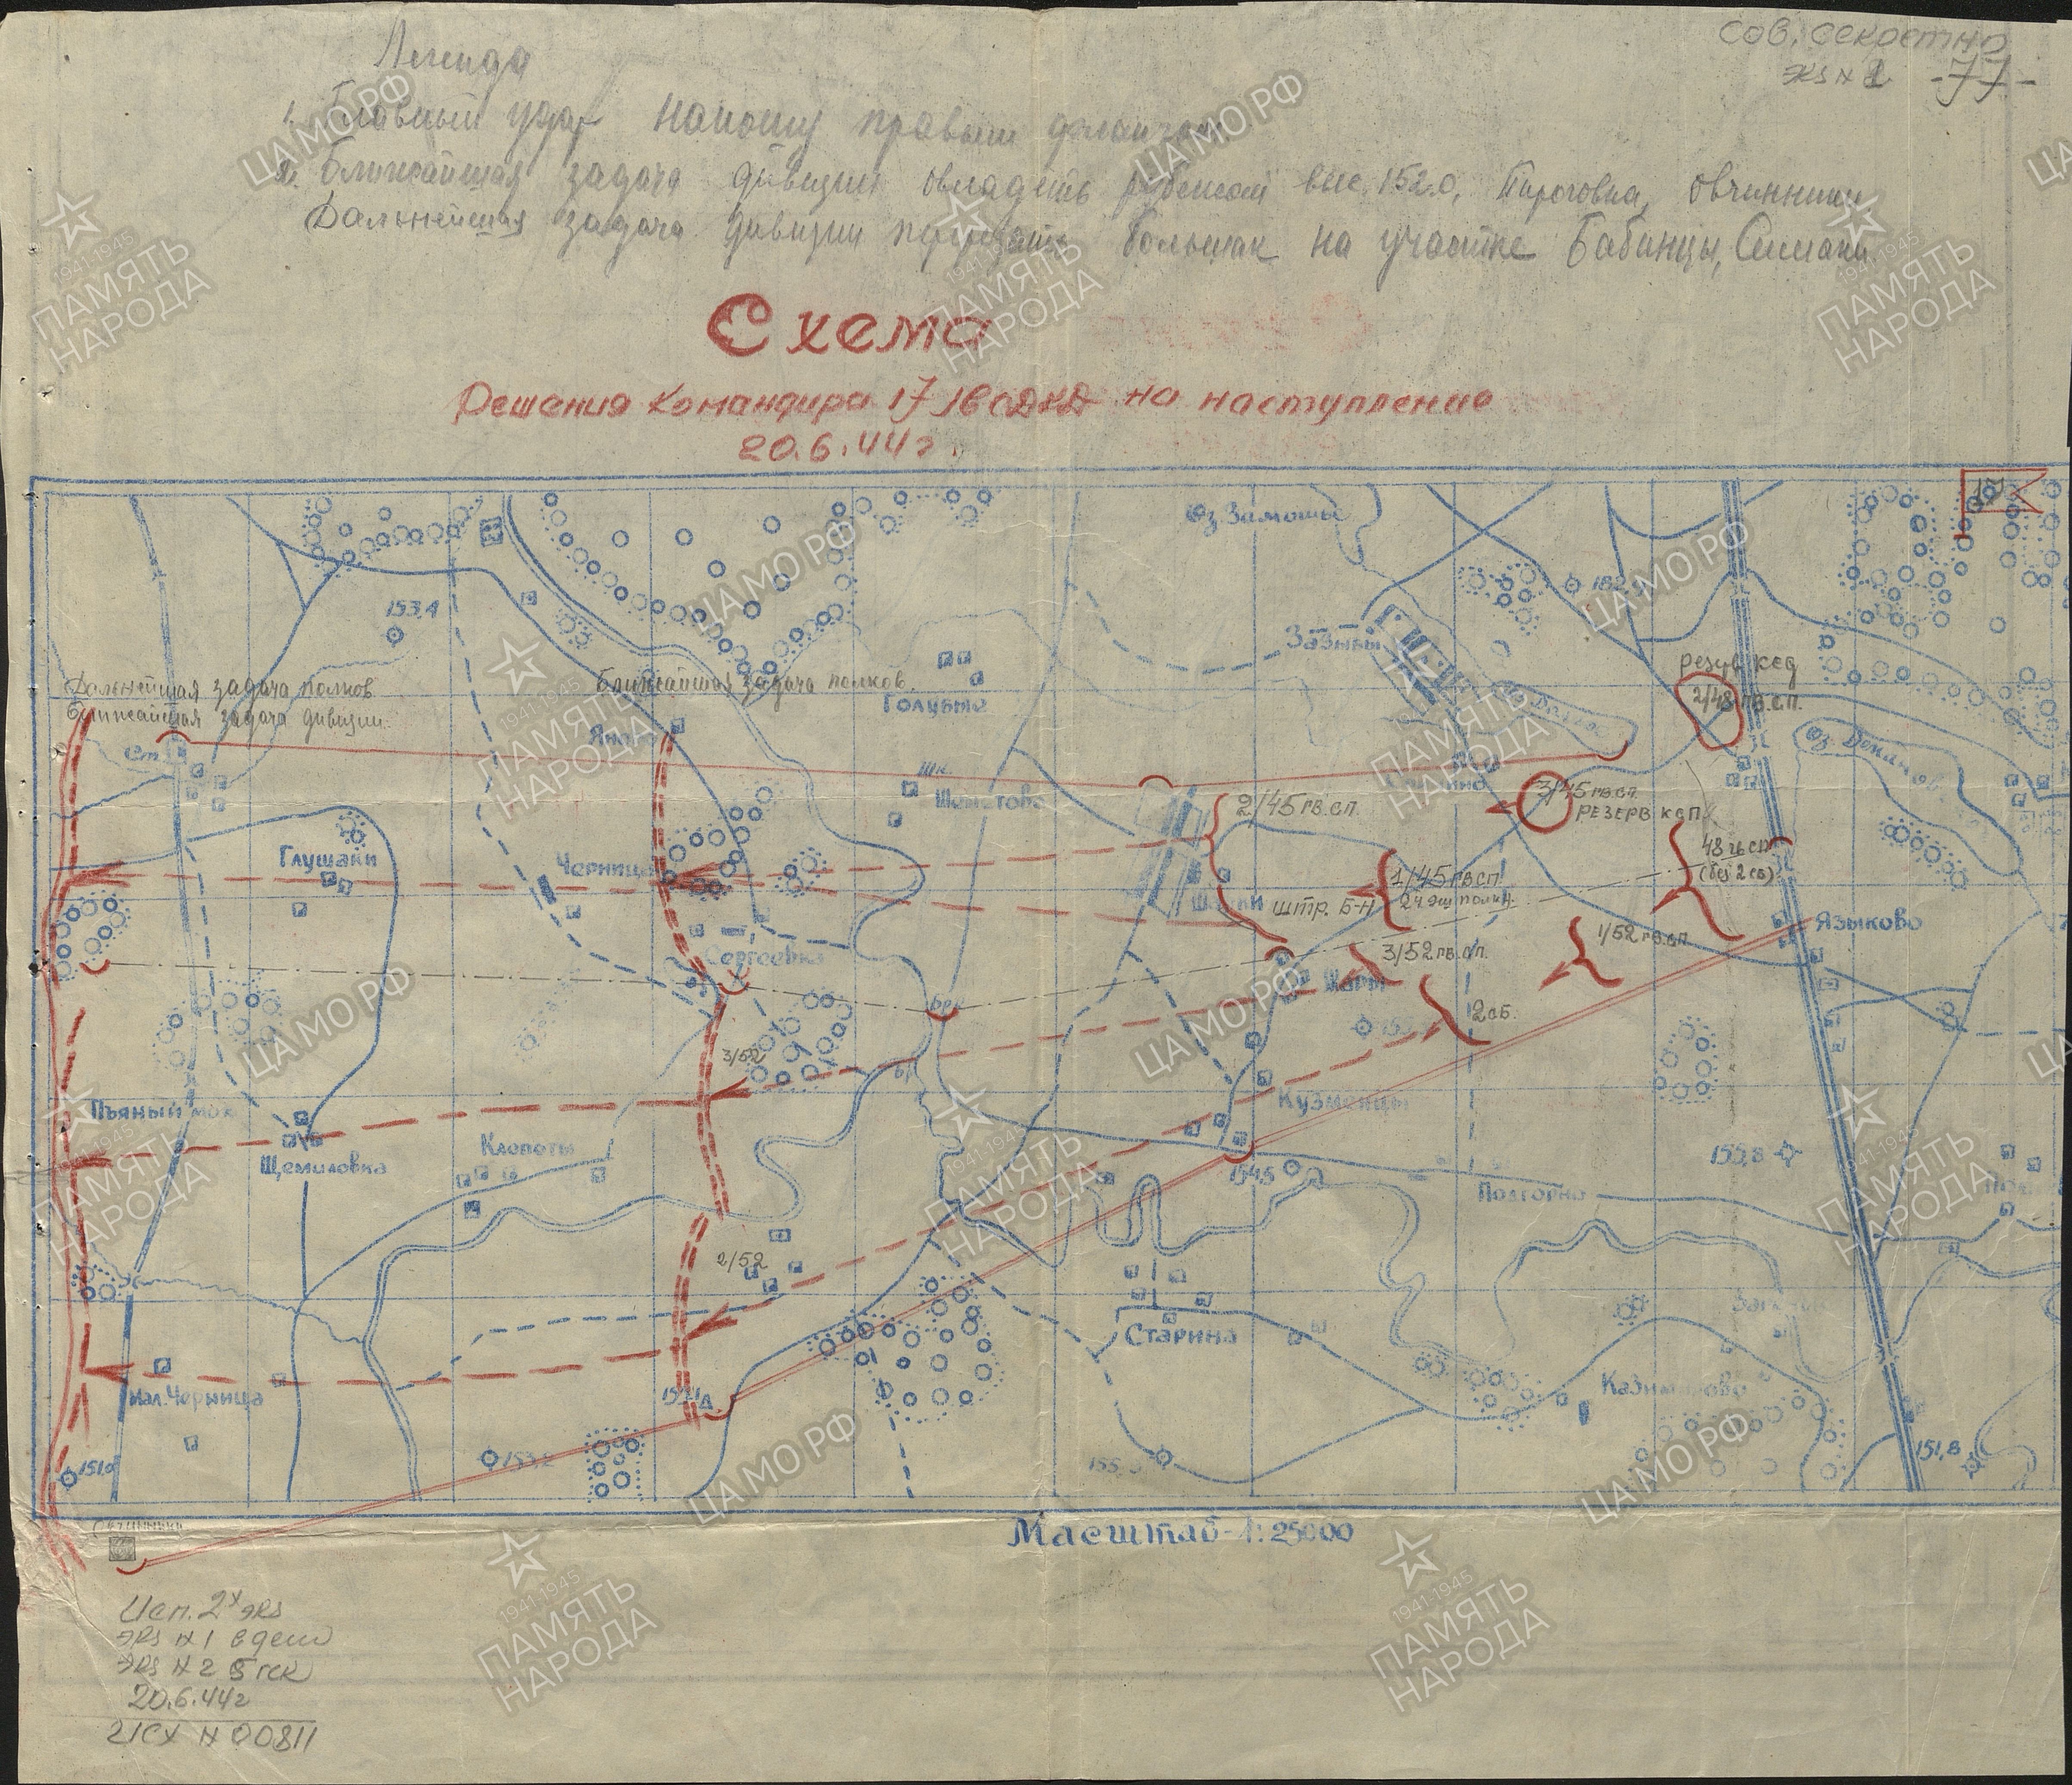 Сов. секретно
Экз № 1 -77-
Легенда
1. Главный удар наношу правым флангом
2. Ближайшая задача дивизии овладеть рубежом выс. 152.0, Пироговка, Овчинники
Дальнейшая задача дивизии перерезать большак на участке Бабинцы, Симаки
Схема
Решения командира 17 гв сдкд на наступление
20.6.44г.
17
Оз. Замошье
153,4
Зазыбы
резерв ксд
2/48 гв.сп.
Дальнейшая задача полков
Ближайшая задача дивизии.
Ближайшая задача полков.
Голубые
Яново
Ст.
Шк.
Шеметово
2/45 гв.сп.
3/45 гв.сп.
резерв ксп
48 гв сп
(без 2 сб)
Глушаки
Черница
1/45 гв сп
штр. б-н
Языково
1/52 гв.сп.
Сергеевка
3/52 гв.сп.
2 сб.
3/52
Пьяный мох
Кузменцы
Щемиловка
Клопоты
154,5
155,8
Подгорно
2/52
Старина
Казимирово
Мал. Черница
151,0
153,2
151,8
Масштаб - 1:25000
Исп. 2х экз
Экз № 1 в дело
Экз № 2 5 гск
20.6.44г
ИСХ № 00811
ЦАМО РФ
1941-1945
ПАМЯТЬ
НАРОДА